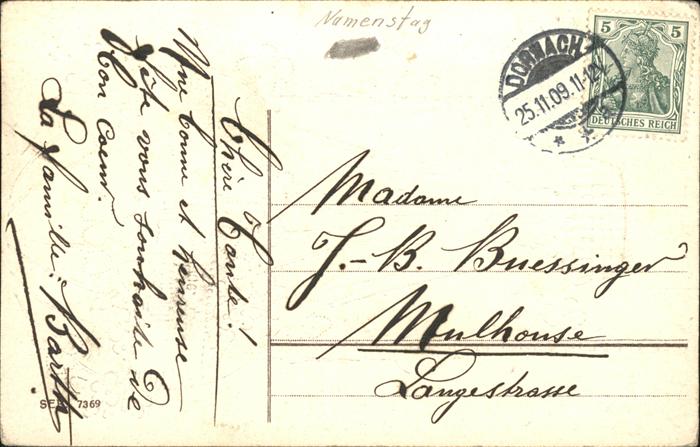 Namenstag
5 5
DEUTSCHES REICH
DORNACH
25.11.09.11-12V.
* *
Chère Tante!
Une bonne et heureuse
fête vous souhaite de
bon Coeur.
La famille: Barth
Madame
J.-B. Buessinger
Mulhouse
Langestrasse
SER. 7369